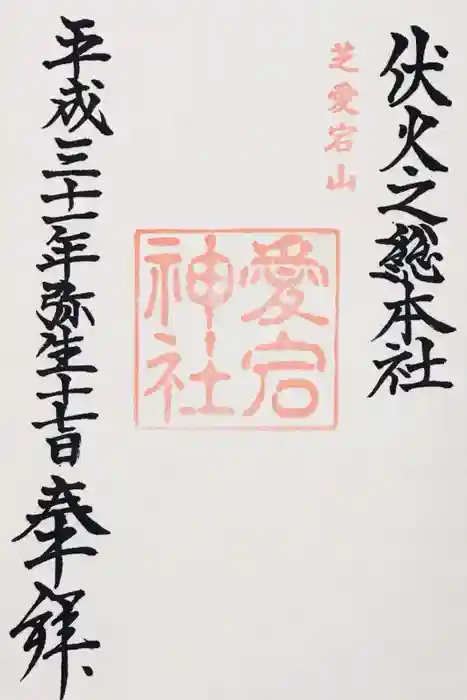 伏火之総本社
芝愛宕山
愛宕
神社
平成三十一年弥生十七日
奉拝